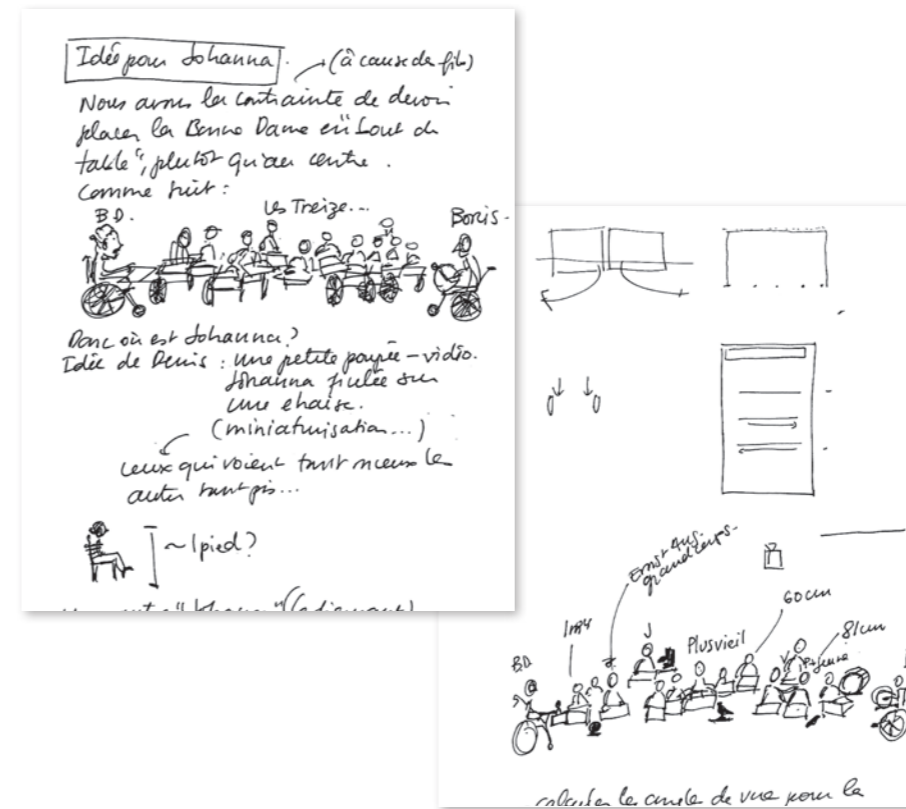 Idée pour Johanna.
(à cause des fils)
Nous avons la contrainte de devoir
placer la Bonne Dame en "bout de
table", plutôt qu'au centre.
Comme suit :
B.D.
Les Treize...
Boris-
Donc où est Johanna?
Idée de Denis : une petite poupée-vidéo.
Johanna ficelée sur
une chaise.
(miniaturisation...)
ceux qui voient tant mieux les
autres tant pis...
~1 pied?
"Johanna"
Ernst Aug.
grand temps-
60 cm
1m4
J
Plusvieil
81cm
BD
V
P+jeune
calculer les angle de vue pour la